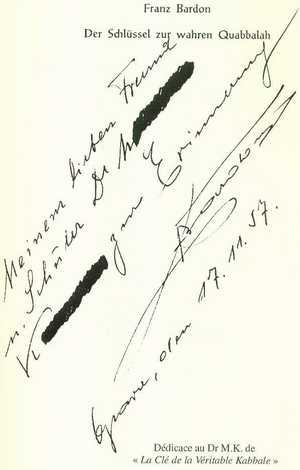 Franz Bardon
Der Schlüssel zur wahren Quabbalah
Meinem lieben Freund
u. Schüler Dr M
K zur Erinnerung
den 17.11.57.
Dédicace au Dr M.K. de
« La Clé de la Véritable Kabbale »